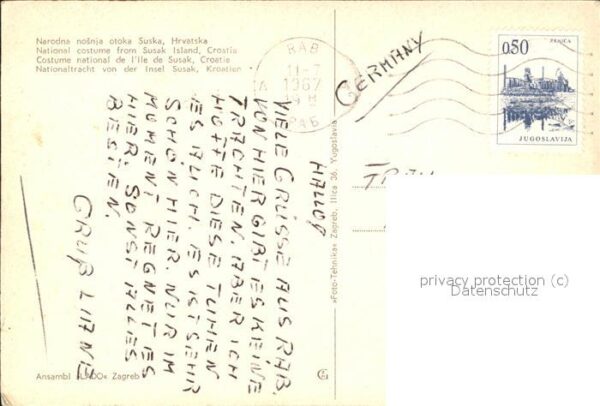 Narodna nošnja otoka Suska, Hrvatska
National costume from Susak Island, Croatia
Costume national de l'Ile de Susak, Croatie
Nationaltracht von der Insel Susak, Kroatien
RAB
11-7
1967
РАБ
GERMANY
0,50
JUGOSLAVIJA
HALLO!
VIELE GRÜSSE AUS RAB.
VON HIER GIBT ES KEINE
TRACHTEN. ABER ICH
HOFFE DIESE TUHEN
ES AUCH. ES IST SEHR
SCHÖN HIER. NUR IM
MOMENT REGNET ES
HIER. SONST ALLES
BESTEN.
GRUß LIANE
»Foto-Tehnika« Zagreb, Ilica 36, Yugoslavia
privacy protection (c)
Datenschutz
Ansambl »LADO« Zagreb